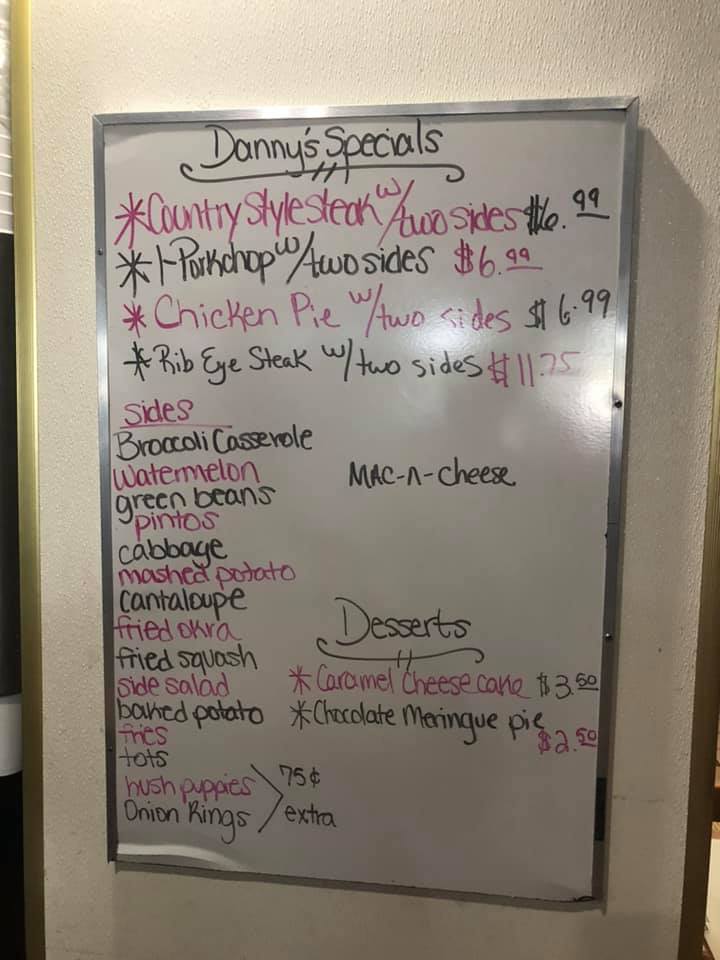 Danny's Specials
*Country Style steak w/two sides $6.99
*1-Porkchop w/two sides $6.99
*Chicken Pie w/two sides $6.99
*Rib Eye Steak w/two sides $11.75
sides
Broccoli Casserole
Watermelon
MAC-n-cheese
green beans
pintos
cabbage
mashed potato
cantaloupe
fried okra
fried squash
side salad
baked potato
fries
tots
hush puppies
Onion Rings
75¢
extra
Desserts
*Caramel Cheesecake $3.50
*Chocolate Meringue pie
$2.50